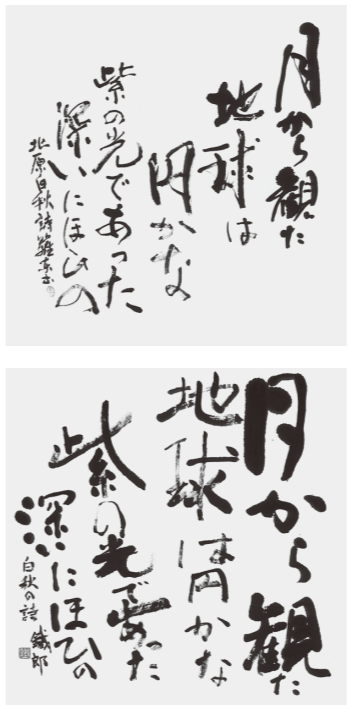 月から観た
地球は
円かな
紫の光であった
深いにほひの
北原白秋詩
月から観た
地球は円かな
紫の光であった
深いにほひの
白秋の詩 鐵郎